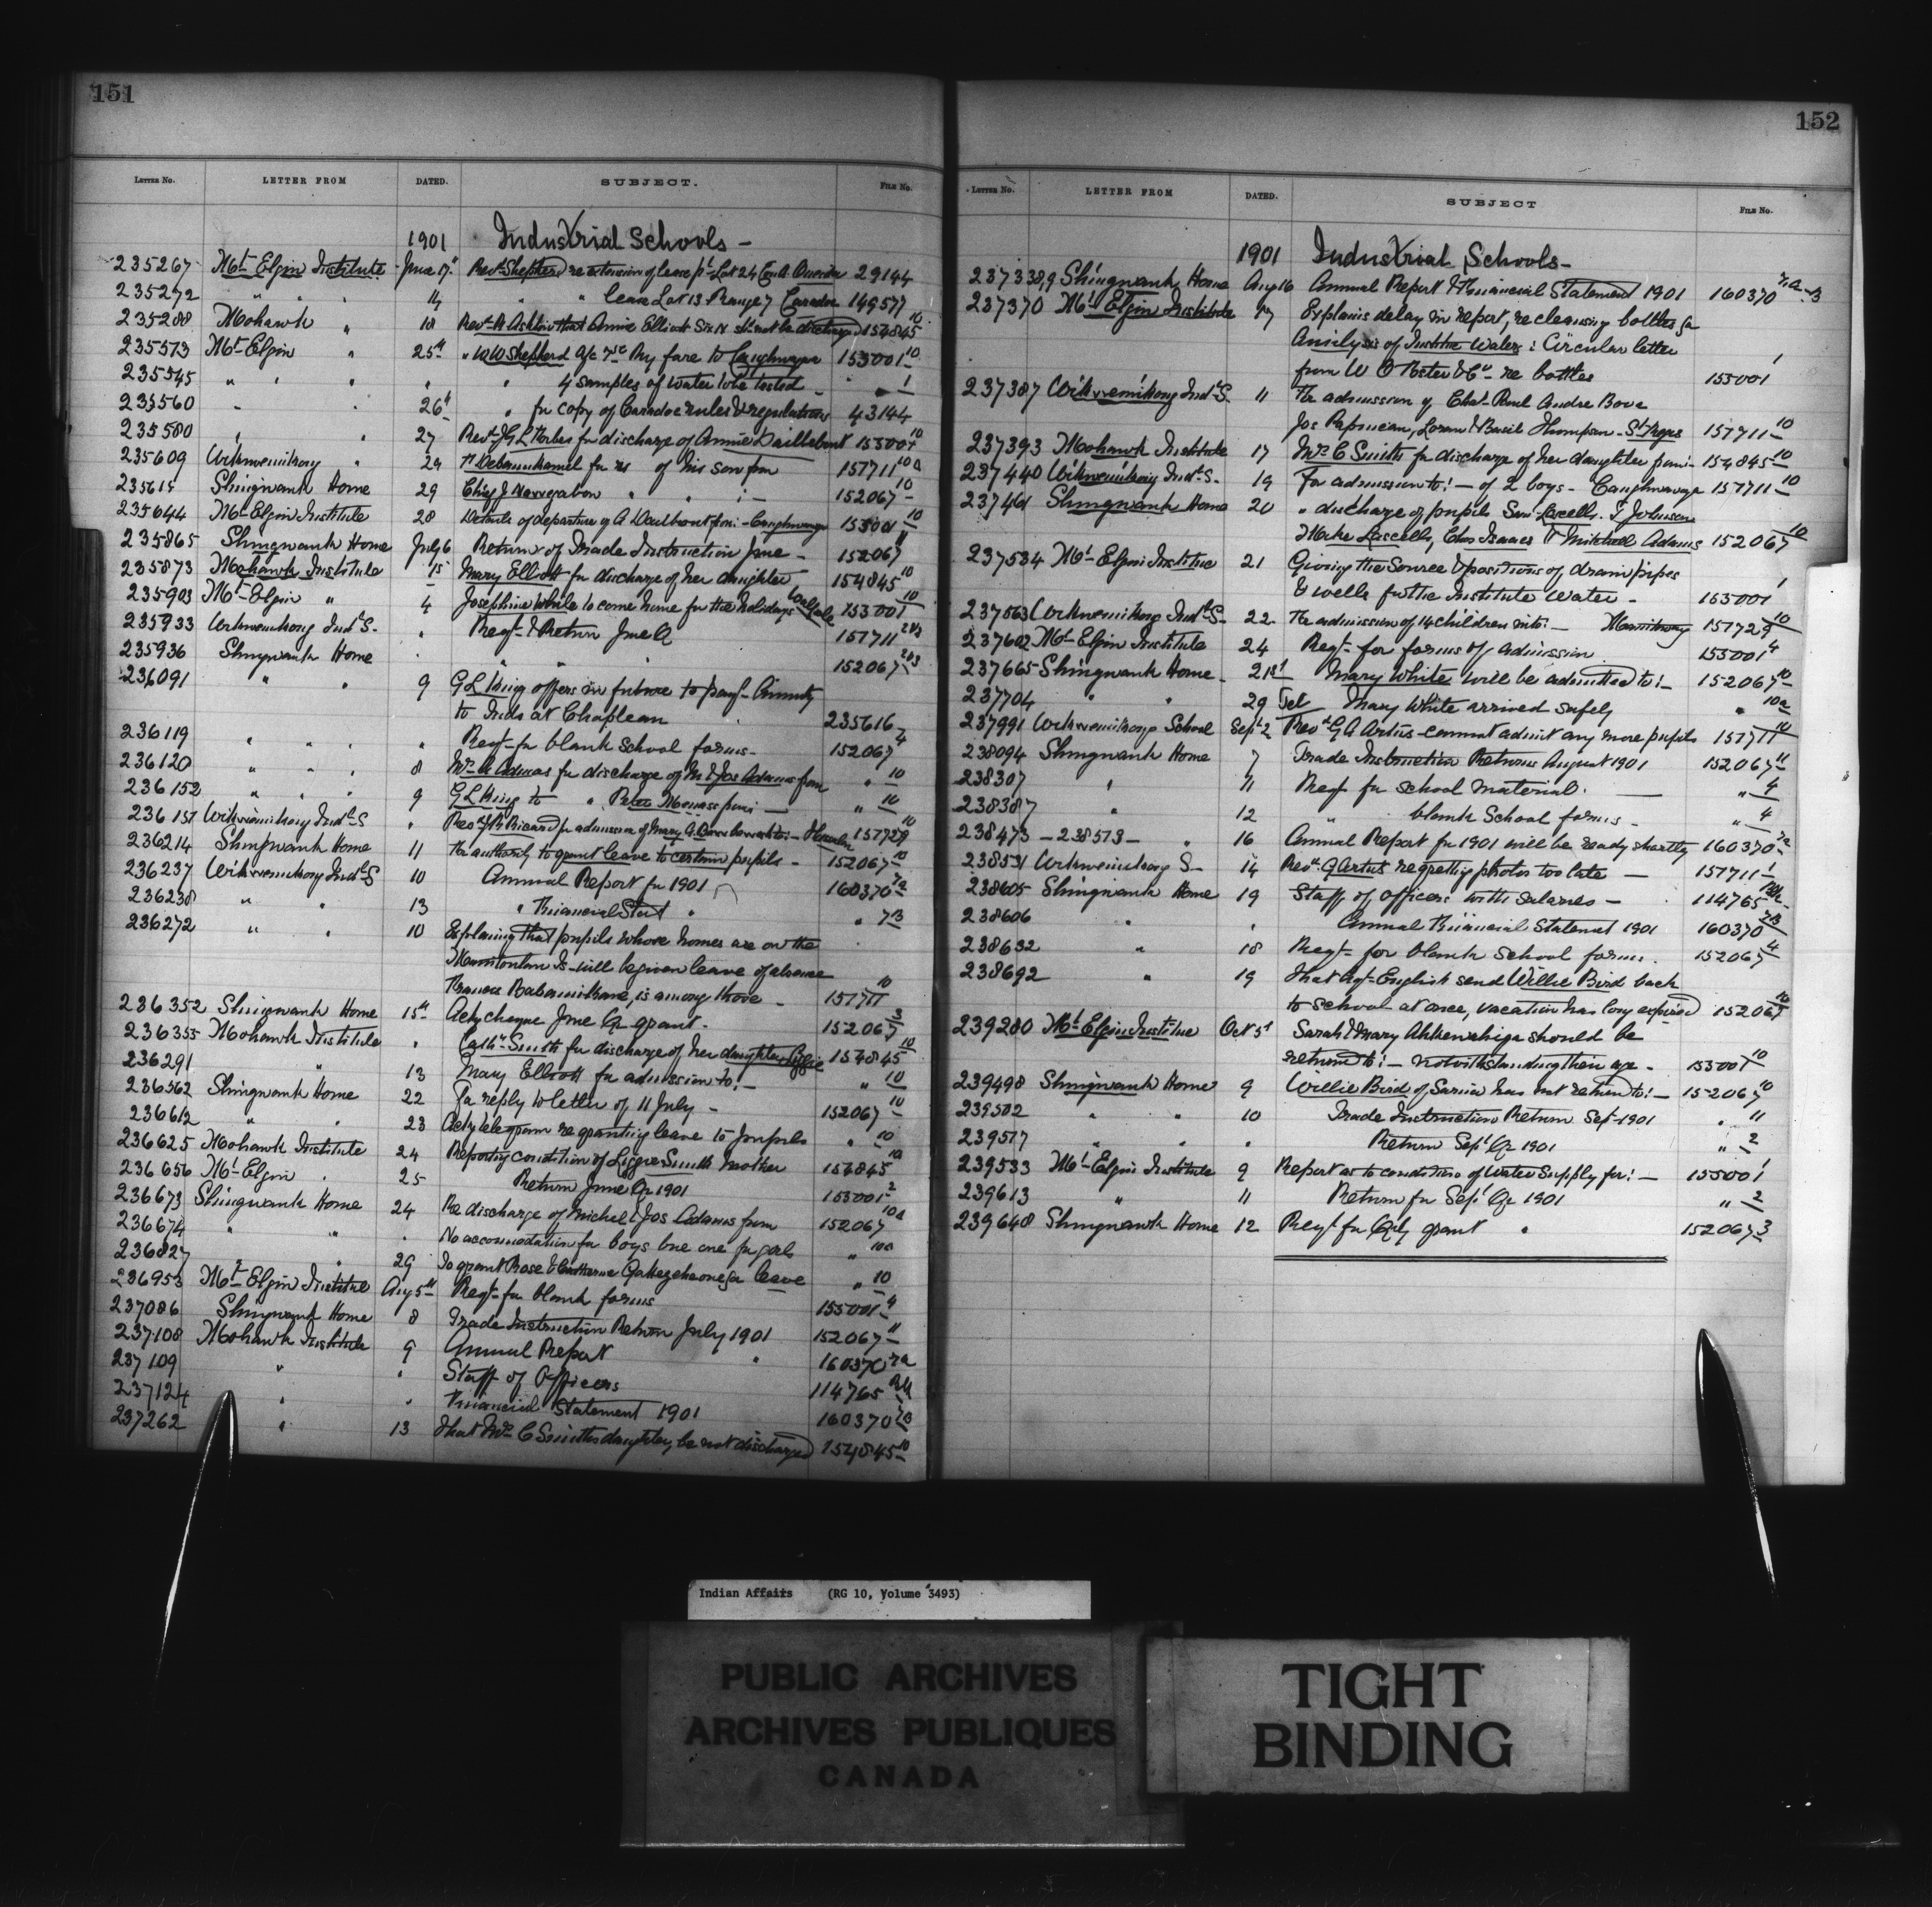 151
LETTER No. LETTER FROM DATED. SUBJECT. FILE No.
1901 Industrial Schools -
235267 Mt Elgin Institute June 17th Revd Shepherd re extension of lease pt Lot 24 Con A Oneida 29144
235272 " " " 14 " " lease Lot 13 Range 7 Caradoc 149577
235288 Mohawk " 18 Revd R Ashton that Annie Elliott Six N shd not be discharged 154845 10
235513 Mt Elgin " 25th " W W Shepherd a/c Ry fare to Caughnawaga 153001 10
235545 " " " " " 4 samples of water to be tested - " 1
235560 " 26th " for copy of Caradoc rules & regulations 43144
235580 " " 27 Revd J G L Forbes for discharge of Annie Daillebout 153001 10
235609 Wikwemikong " 29 of his son from 157711 10a
235615 Shingwauk Home 29 Chief J " " : - 152067 10
235644 Mt Elgin Institute 28 Details of departure of A from :- Caughnawaga 153001 10
235865 Shingwauk Home July 6 Return of Trade Instruction June - 152067 11
235873 Mohawk Institute 15 Mary Elliott for discharge of her daughter 154845 10
235903 Mt Elgin " 4 Josephine White to come home for the holidays 153001 10
235933 Wikwemikong Indl S. " Reqt & Return June Q 157711 2&3
235936 Shingwauk Home " " " " 152067 2&3
236091 " " 9 G L King offers in future to pay Annuity
to Inds at Chapleau 235616
236119 " " " " Reqt for blank school forms - 152067 4
236120 " " " 8 Mrs A Adams for discharge of M & Jos Adams from " 10
236152 " " " 9 G L King to " Peter from :- " 10
236157 Wikwemikong Indl S " Revd J R Ricard for admission of Mary A 157729 10
236214 Shingwauk Home 11 For authority to grant leave to certain pupils - 152067 10
236237 Wikwemikong Indl S 10 Annual Report for 1901 160370 7a
236238 " " 13 " Financial Stat " " 7B
236272 " " 10 Explaining that pupils whose homes are on the
Manitoulin Is will be given leave of absence
Frances is among those - 157711 10
236352 Shingwauk Home 15th Ackg cheque June Qr grant - 152067 3
236355 Mohawk Institute " Smith for discharge of her daughter Lizzie 154845 10
236291 " 13 Mary Elliott for admission to :- " 10
236562 Shingwauk Home 22 For reply to letter of 11 July - 152067 10
236612 " " 23 Ackg telegram re granting leave to pupils " 10
236625 Mohawk Institute 24 Reporting condition of Lizzie Smith mother 154845 10
236656 Mt Elgin " 25 Return June Qr 1901 153001 2
236673 Shingwauk Home 24 Re discharge of Michel & Jos Adams from 152067 10a
236674 " " " No accommodation for boys but one for girls " 10a
236827 " " 29 To grant Rose & Catherine leave " 10
236953 Mt Elgin Institute Aug 5th Reqt for blank forms 153001 4
237086 Shingwauk Home 8 Trade Instruction Return July 1901 152067 11
237108 Mohawk Institute 9 Annual Report " 160370 7a
237109 " " Staff of Officers 114765
237124 " " Financial Statement 1901 160370 7B
237262 " 13 That Mrs C Smiths daughter, be not discharged 154845 10
152
LETTER No. LETTER FROM DATED. SUBJECT FILE No.
1901 Industrial Schools -
237338,9 Shingwauk Home Aug 16 Annual Report & Financial Statement 1901 160370 7a-B
237370 Mt Elgin Institute 17 Explains delay in report, re cleansing bottles for
Analysis of Institute Water : Circular letter
from W re bottles 153001 1
237387 Wikwemikong Indl S. 11 For admission of Chas Paul Andre Bova
Jos Papineau, Loran & Basil Thompson - St Regis 157711 10
237393 Mohawk Institute 17 Mrs C Smith for discharge of her daughter from :- 154845 10
237440 Wikwemikong Indl S - 19 For admission to :- of 2 boys - Caughnawaga 157711 10
237461 Shingwauk Home 20 " discharge of pupils Sam Lascells, T Johnson
Mike Lascells, Chas Isaacs & Mitchell Adams 152067 10
237534 Mt Elgin Institue 21 Giving the Source & positions of drain pipes
& wells for the Institute Water - 153001 1
237563 Wikwemikong Indl S - 22 For admission of 14 children into :- 157729 10
237602 Mt Elgin Institute 24 Reqt for forms of admission 153001 4
237665 Shingwauk Home - 21st Mary White will be admitted to :- 152067 10
237704 " " 29 Tel Mary White arrived safely " 10a
237991 Wikwemikong School Sept 2 Revd G A Artus - cannot admit any more pupils 157711 10
238094 Shingwauk Home 7 Trade Instruction Returns August 1901 152067 11
238307 " 11 Reqt for school material. - " 4
238387 " 12 " blank School forms - " 4
238473 - 238513 - " 16 Annual Report for 1901 will be ready shortly 160370 7a
238531 Wikwemikong S - 14 Revd G Artus regretting photos too late - 157711 1
238605 Shingwauk Home 19 Staff of officers with salaries - 114765
238606 " " Annual Financial Statement 1901 160370 7B
238632 " 18 Reqt for blank School forms. 152067 4
238692 " 19 that Agt English send Willie Bird back
to school at once, vacation has long expired 152067 10
239280 Mt Elgin Institue Oct 5th Sarah & Mary should be
returned to :- notwithstanding their age - 153001 10
239498 Shingwauk Home 9 Willie Bird of Sarnia has not returned to :- 152067 10
239502 " " 10 Trade Instruction Return Sept 1901 " 11
239517 " " " Return Sept Qr 1901 " 2
239533 Mt Elgin Institute 9 Report as to condition of Water Supply for :- 153001 1
239613 " 11 Return for Sept Qr 1901 " 2
239648 Shingwauk Home 12 Reqt for Qrly grant " 152067 3
Indian Affairs (RG 10, Volume 3493)
PUBLIC ARCHIVES
ARCHIVES PUBLIQUES
CANADA
TIGHT
BINDING